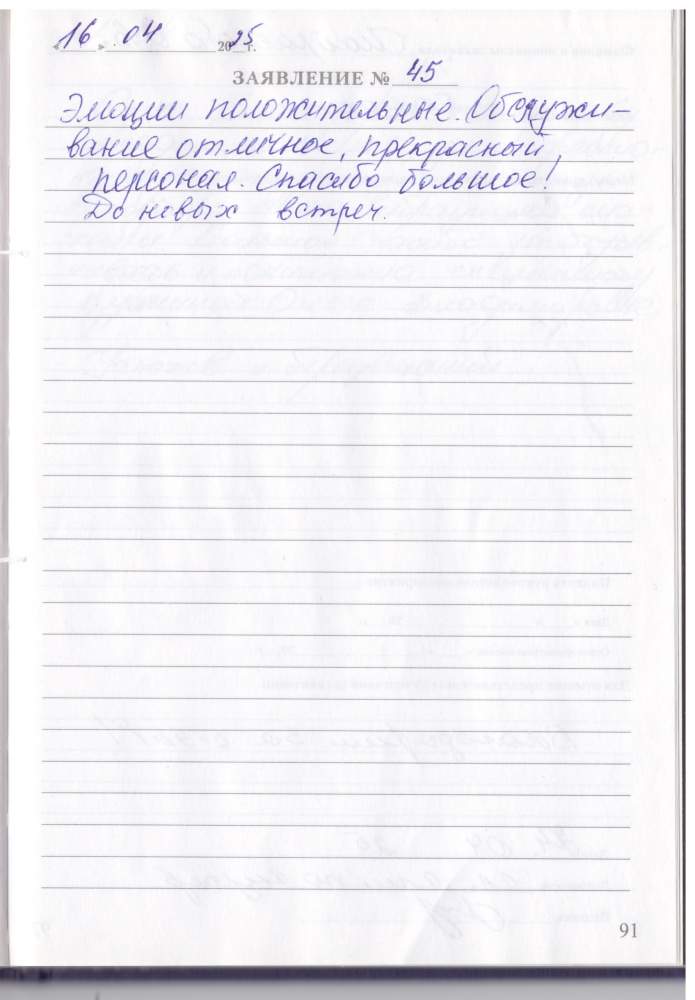 «16» 04 2025 г.
ЗАЯВЛЕНИЕ № 45
Эмоции положительные. Обслужи-
вание отличное, прекрасный
персонал. Спасибо большое!
До новых встреч.
91